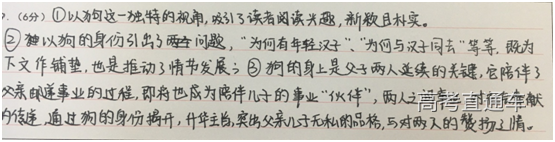 7.(6分) ①以狗这一独特的视角,吸引了读者阅读兴趣,新颖且朴实。
②以狗的身份引出了问题,“为何有年轻汉子”、“为何与汉子同去”等等,既为
下文作铺垫,也是推动了情节发展;③狗的身上是父子两人延续的关键,它陪伴了
父亲邮递事业的过程,即将也成为陪伴儿子的事业“伙伴”,两人之献
的传递,通过狗的身份揭开,升华主旨,突出父亲儿子无私的品格,与对两人的赞扬之情。
高考直通车